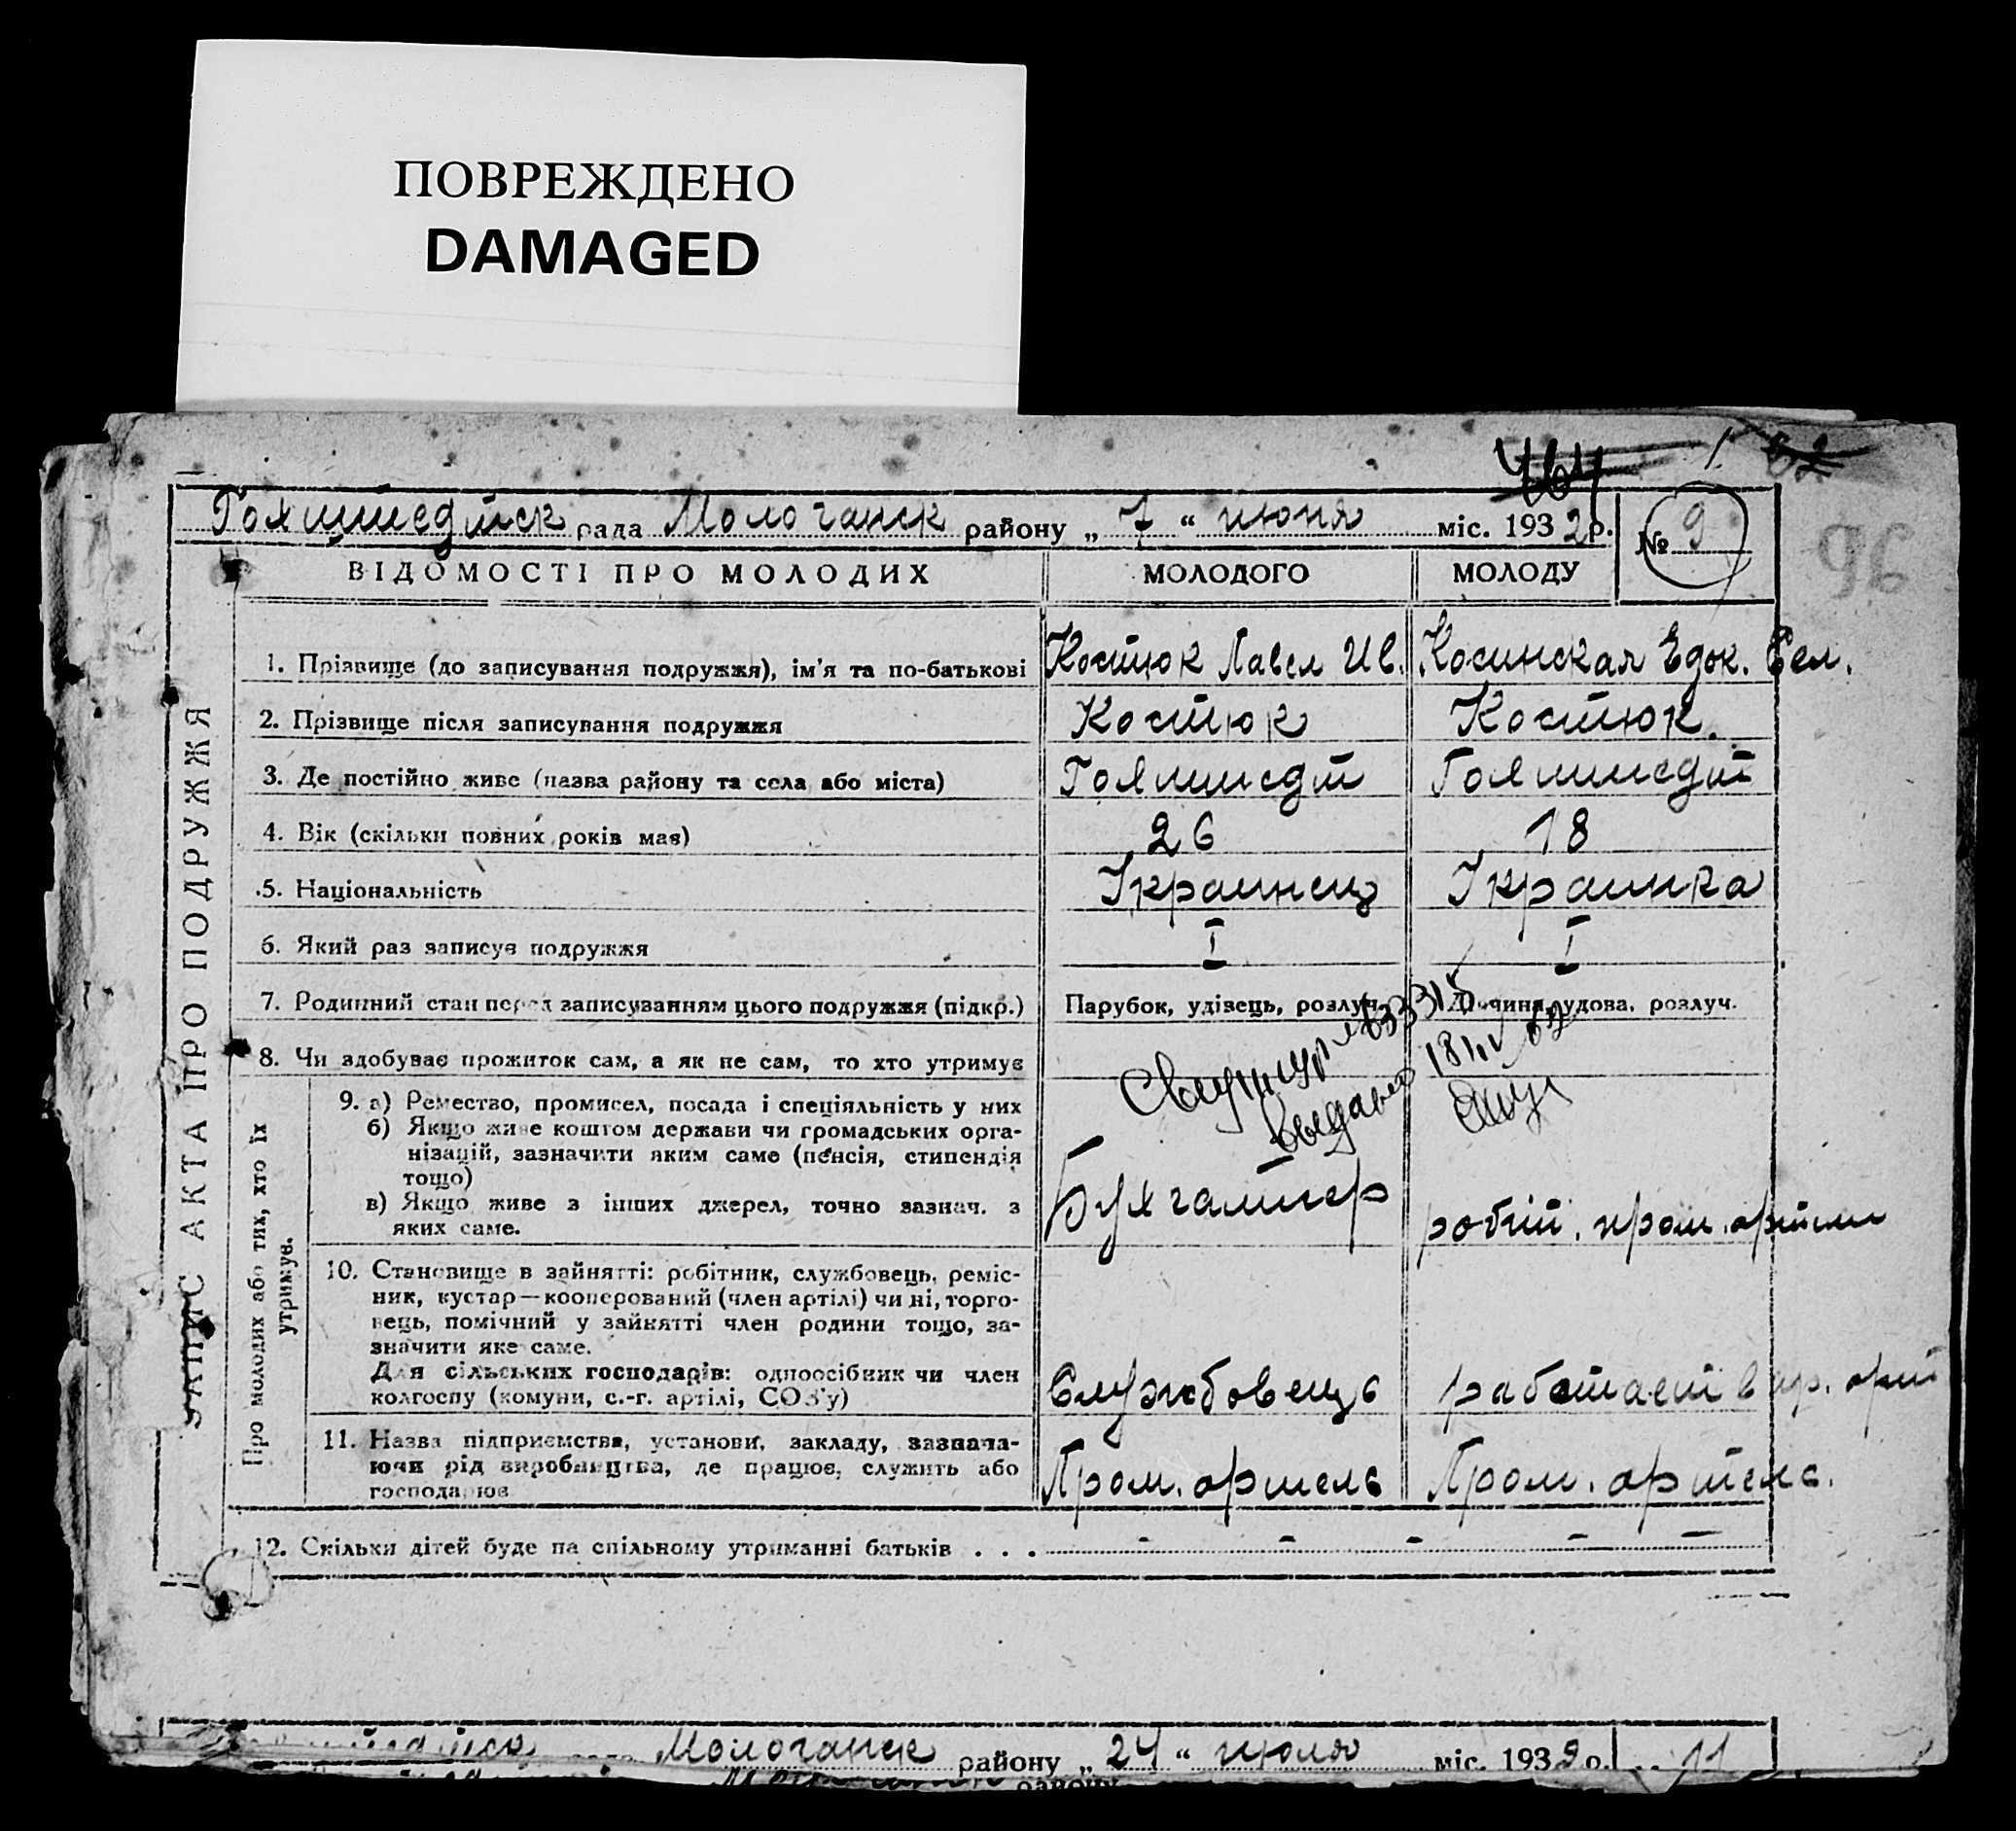 ПОВРЕЖДЕНО
DAMAGED
1
Гохштедтск рада Молочанск району „ 7 “ июня міс. 1932 р. № 9
96
ВІДОМОСТІ ПРО МОЛОДИХ МОЛОДОГО МОЛОДУ
ЗАПИС АКТА ПРО ПОДРУЖЖЯ
1. Прізвище (до записування подружжя), ім'я та по-батькові Костюк Павел Ив. Косинская Едок.
2. Прізвище після записування подружжя Костюк Костюк.
3. Де постійно живе (назва району та села або міста) Гохштедт Гохштедт
4. Вік (скільки повних років має) 26 18
5. Національність Украинец Украинка
6. Який раз записує подружжя I I
7. Родинний стан перед записуванням цього подружжя (підкр.) Парубок, удівець, розлуч. Дівчина, удова, розлуч.
8. Чи здобуває прожиток сам, а як не сам, то хто утримує
выдано
Про молодих або тих, хто їх утримує.
9. а) Ремество, промисел, посада і спеціяльність у них
б) Якщо живе коштом держави чи громадських орга-
нізацій, зазначити яким саме (пенсія, стипендія
тощо)
в) Якщо живе з інших джерел, точно зазнач. з
яких саме.
Бухгалтер робіт. пром. артели
10. Становище в зайнятті: робітник, службовець, реміс-
ник, кустар—кооперований (член артілі) чи ні, торго-
вець, помічний у зайнятті член родини тощо, за-
значити яке саме.
Для сільських господарів: одноосібник чи член
колгоспу (комуни, с.-г. артілі, СОЗ'у)
Службовець работает в пр. арт
11. Назва підприємства, установи, закладу, зазнача-
ючи рід виробництва, де працює, служить або
господарює
Пром. артель Пром. артель.
12. Скільки дітей буде на спільному утриманні батьків . . . - - - - -
Молочанск району „ 24 “ июля міс. 1932 р. 11
району